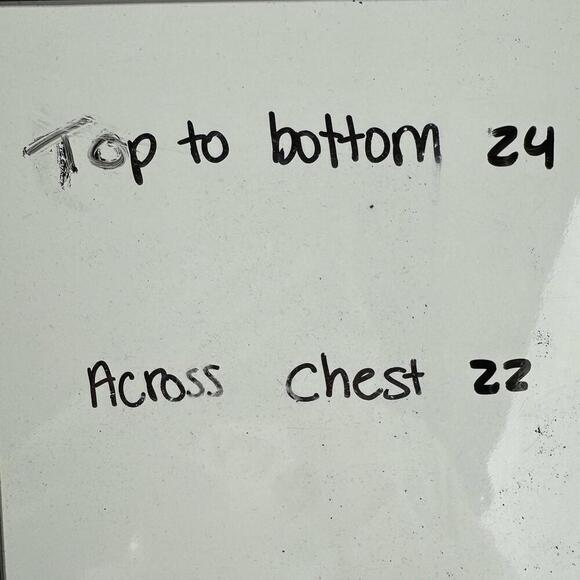 Top to bottom 24
Across Chest 22